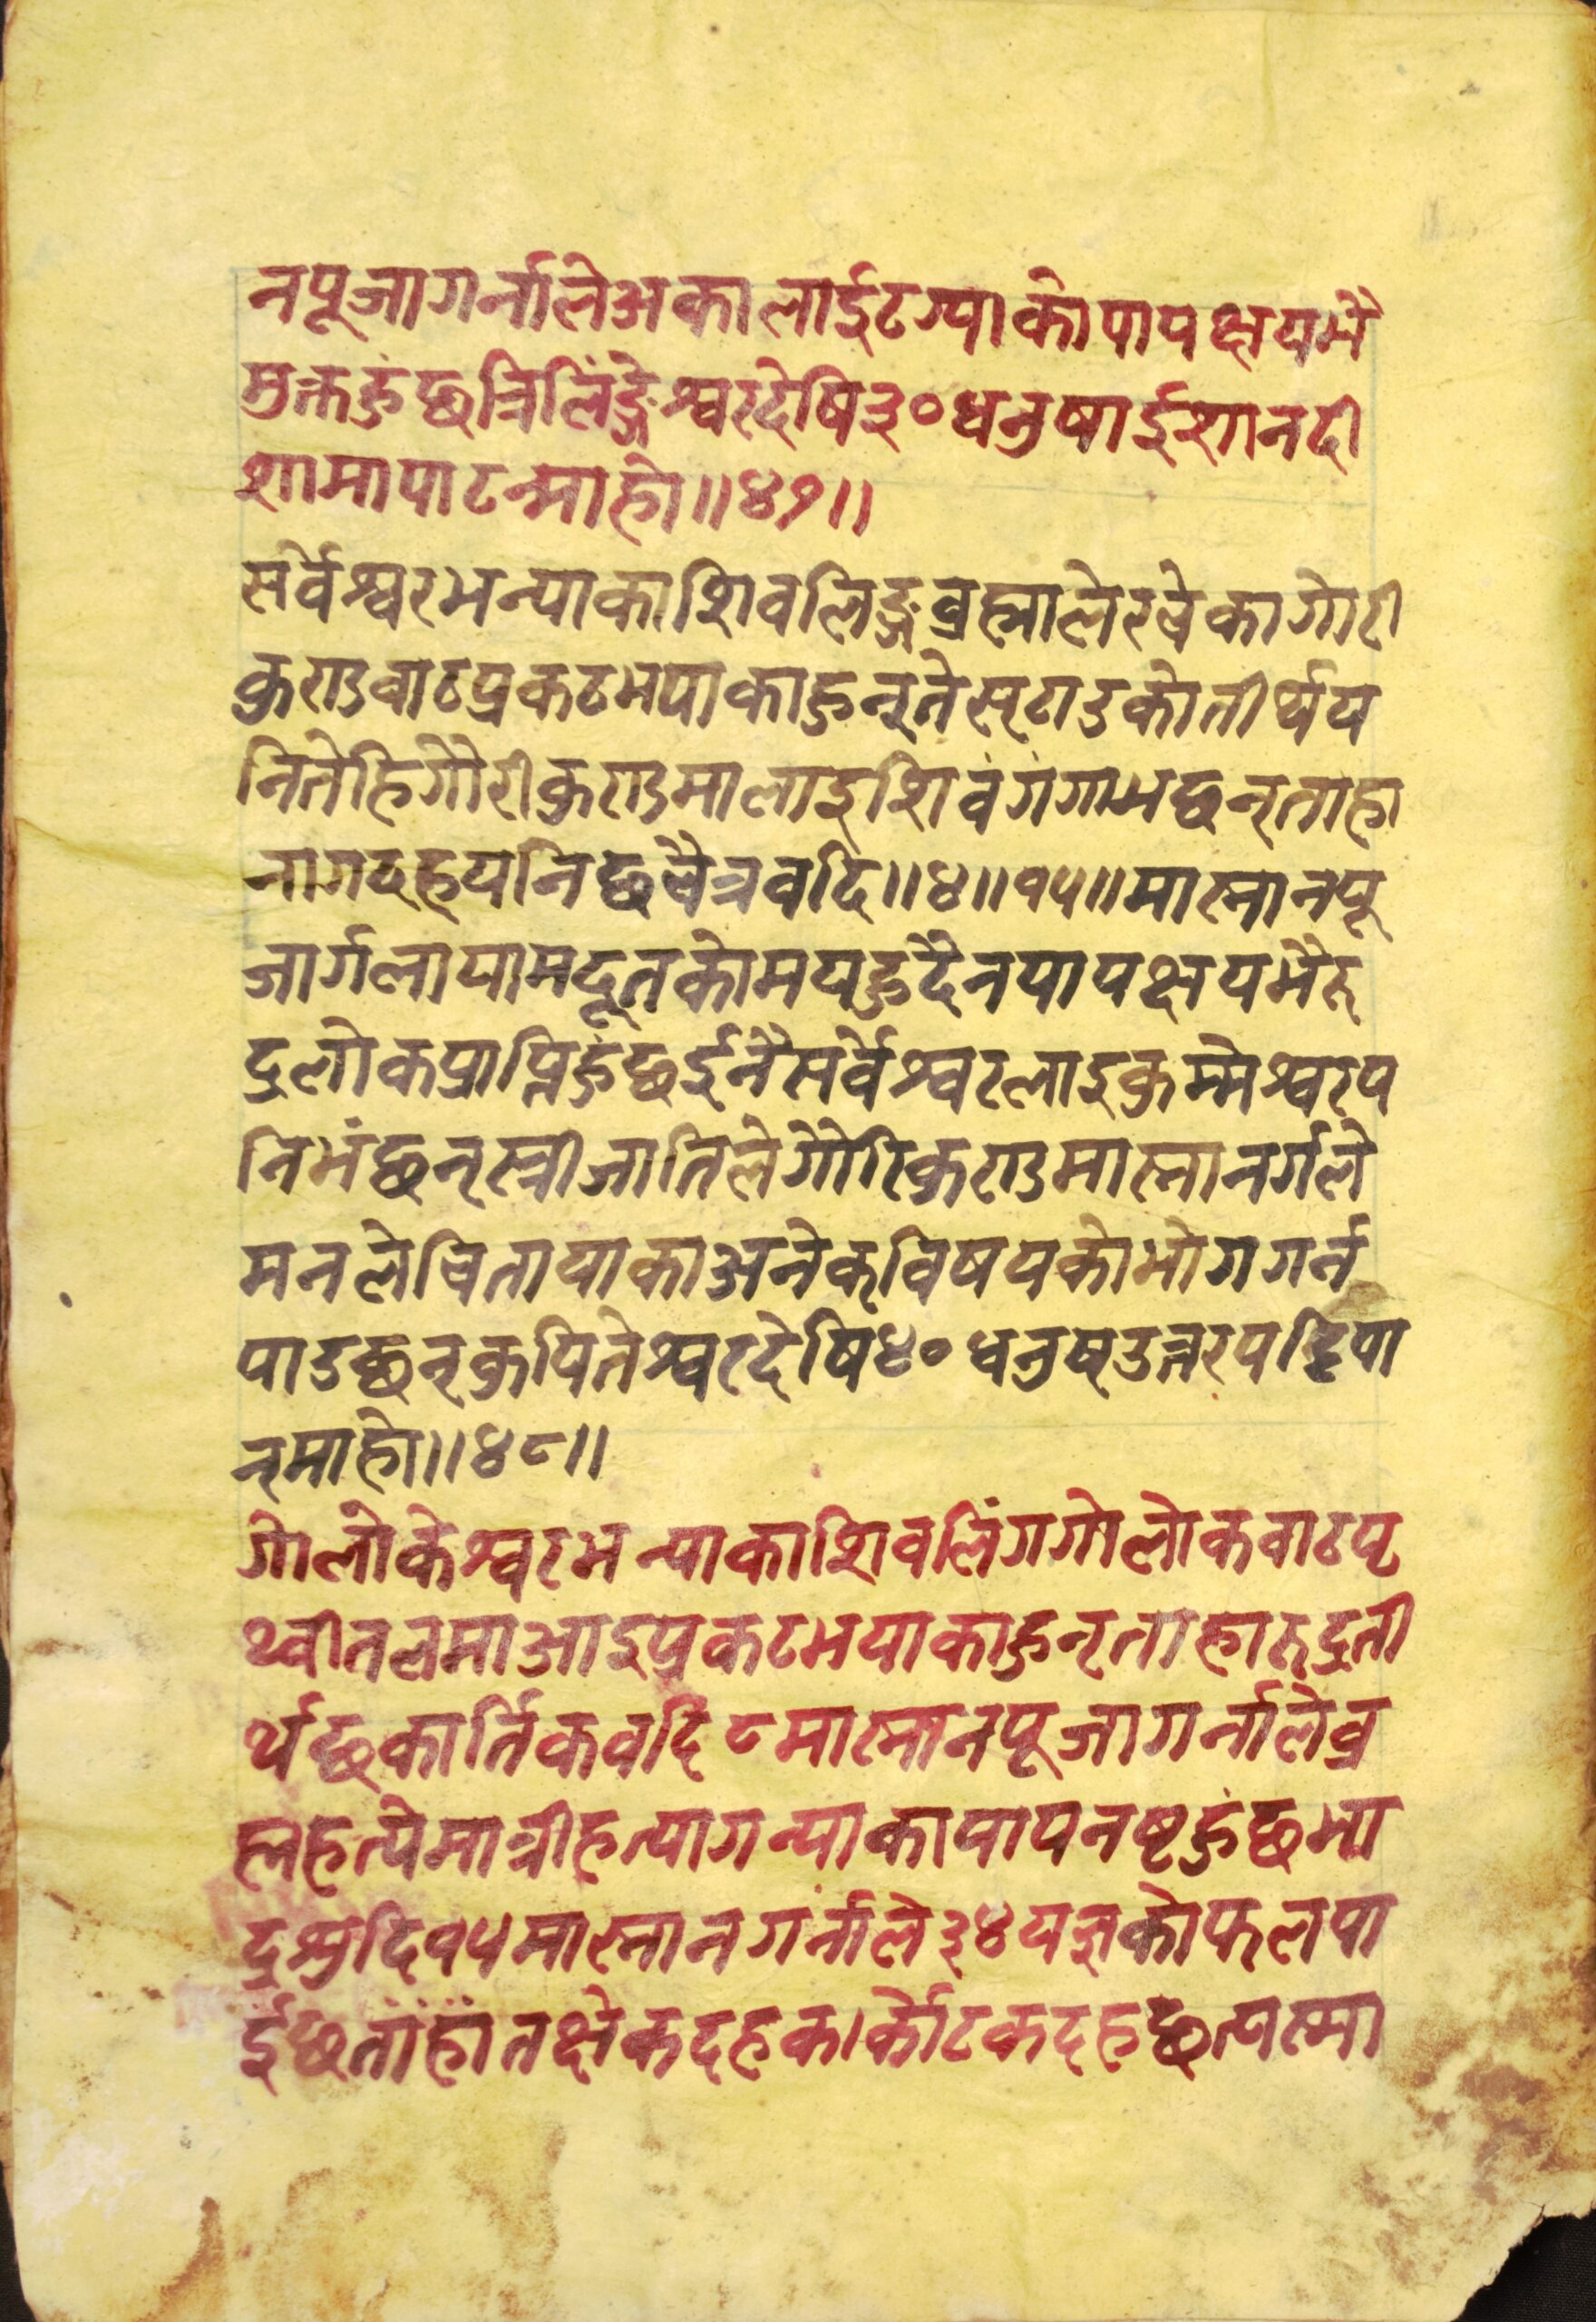 नपूजागर्नालेअकालाईटग्याकोपापक्षयभै
मुक्तहुंछत्रिलिंङ्गेश्वरदेषि३०धनुषाईशानदी
शामापाटन्माहो॥४७॥
सर्वेश्वरभन्याकाशिवलिङ्गब्रह्मालेरषेकागोरी
कुण्डवाटप्रकटभयाकाहुन्तेस्ठाउकोतीर्थय
नितेहिगौरीकुण्डमालाइशिवंगंगाभंछन्ताहा
नागदहयनिछचैत्रवदि॥४॥१५॥मास्नानपू
जार्गलायामदूतकोभयहुदैनयापक्षयभैरु
द्रलोकप्राप्तिहुंछईनैसर्वेश्वरलाइकुम्भेश्वरप
निभंछन्स्त्रीजातिलेगौरिकुण्डमास्नानर्गले
मनलेचितायाकाअनेकविषयकोभोगगर्न
पाउछन्कुपितेश्वरदेषि४०धनुषउत्तरपट्टिपा
न्माहो॥४८॥
गोलोकेश्वरभन्याकाशिवलिंगगोलोकवाटपृ
थ्वीतलमाआइप्रकटभयाकाहुन्ताहारुद्रती
र्थछकार्तिकवदि८मास्नानपूजागर्नालेब्र
ह्महत्येमात्रीहत्यागन्याकापापनष्टहुंछभा
द्रशुदि१५मास्नानगर्नाले३४यज्ञकोफलपा
ईछतांहांतक्षेकदहकार्कोटकदहछत्यत्मा